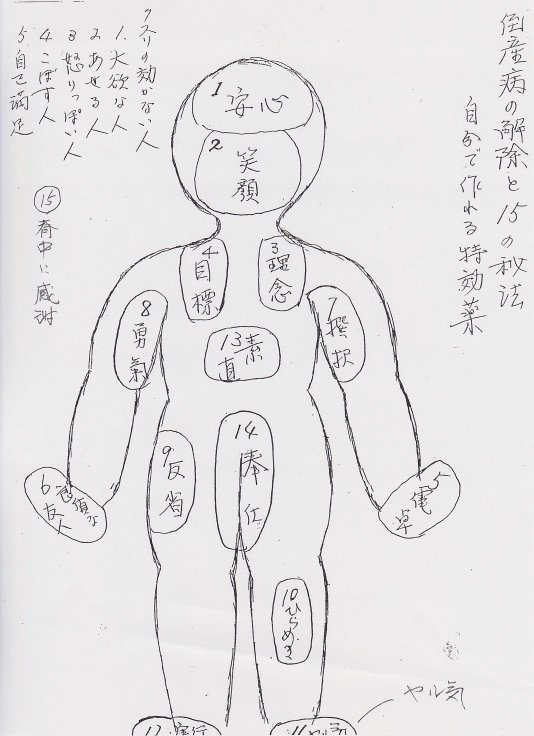 倒産病の解除と15の秘法
自分で作れる特効薬
クスリの効かない人
1.大欲な人
2.あせる人
3.怒りっぽい人
4.こぼす人
5.自己満足
⑮背中に感謝
1安心
2笑顔
3理念
4目標
7撰択
8勇氣
13素直
14奉仕
9反省
5電卓
6悪須な友人
10ひらめき
ヤル気
12実行
11ヤル気